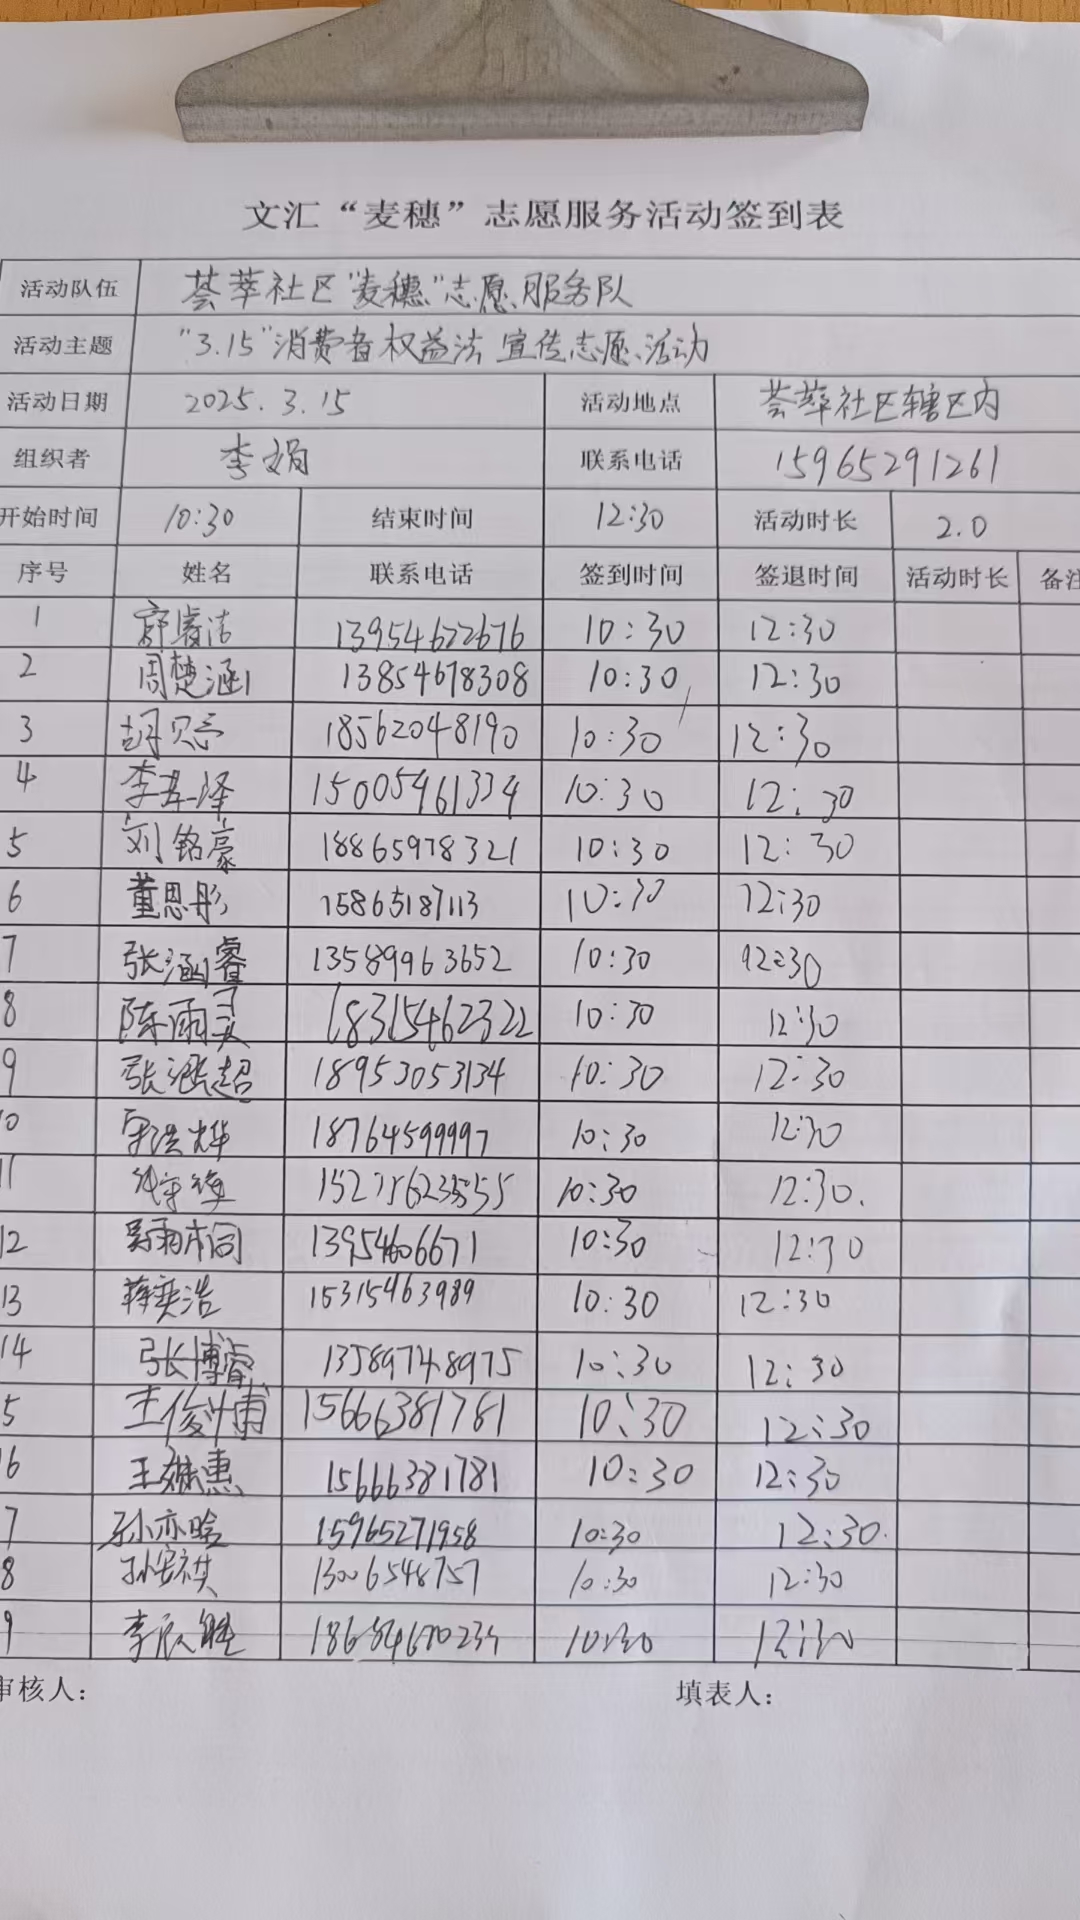 文汇“麦穗”志愿服务活动签到表
活动队伍 荟萃社区“麦穗”志愿服务队
活动主题 “3.15”消费者权益法宣传志愿活动
活动日期 2025.3.15 活动地点 荟萃社区辖区内
组织者 李娟 联系电话 15965291261
开始时间 10:30 结束时间 12:30 活动时长 2.0
序号 姓名 联系电话 签到时间 签退时间 活动时长 备注
1 13954622676 10:30 12:30
2 周楚涵 13854678308 10:30 12:30
3 胡贝 18562048190 10:30 12:30
4 李 泽 15005461334 10:30 12:30
5 刘铭豪 18865978321 10:30 12:30
6 董思彤 15865187113 10:30 12:30
7 张涵睿 13589963652 10:30 12:30
8 陈雨灵 18315462322 10:30 12:30
9 张 超 18953053134 10:30 12:30
10 宋浩烨 18764599997 10:30 12:30
11 10:30 12:30.
12 吴雨桐 13954606671 10:30 12:30
13 蒋奕浩 15315463989 10:30 12:30
14 张博睿 13589748975 10:30 12:30
5 王俊 15666381781 10:30 12:30
6 王 惠 15666381781 10:30 12:30
7 孙亦晗 15965271958 10:30 12:30.
8 孙安祺 13006548757 10:30 12:30
9 李 10:30 12:30
审核人： 填表人：